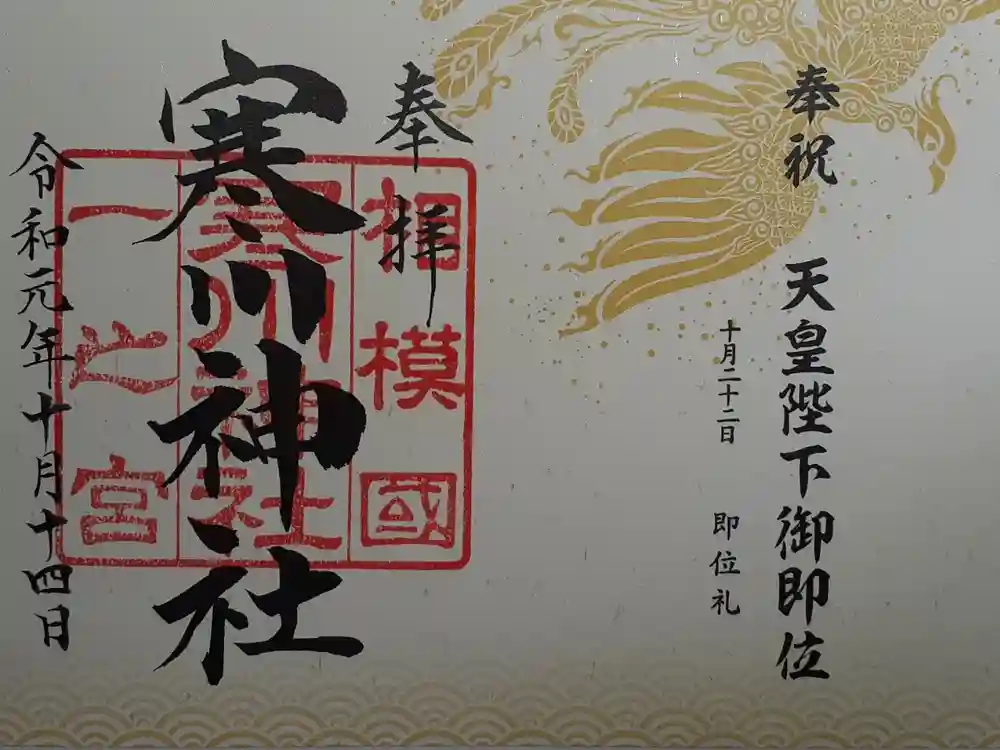 奉祝 天皇陛下御即位
十月二十二日 即位礼
奉拝
相模國
寒川神社
寒川神社
一之宮
令和元年十月十四日